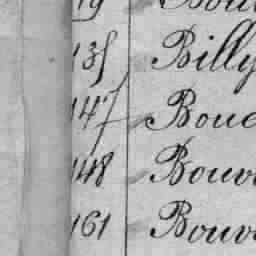 19
135 Billy
147 Boue
148 Bouv
161 Bouv